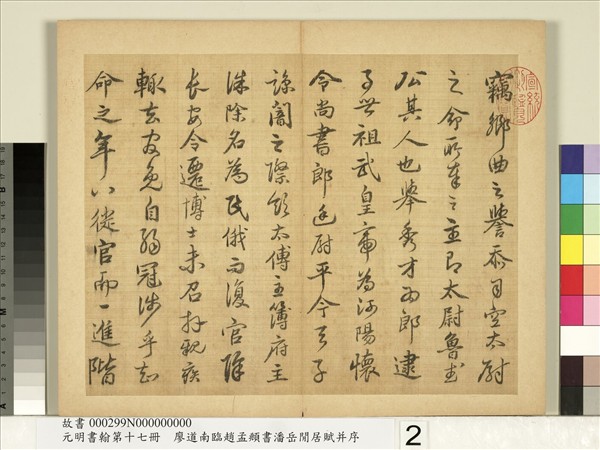 竊鄉曲之譽忝司空太尉
之命所奉之主即太尉魯武
公其人也舉秀才為郎逮
事世祖武皇帝為河陽懷
令尚書郎廷尉平今天子
諒闇之際領太傅主簿府主
誅除名為民俄而復官除
長安令遷博士未召拜親疾
輒去官免自弱冠涉乎知
命之年八徙官而一進階
故書 000299N000000000
元明書翰第十七冊 廖道南臨趙孟頫書潘岳閒居賦并序
2